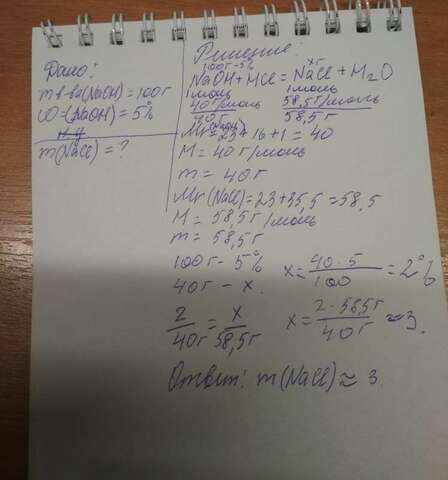 Дано:
m в-ва (NaOH) = 100г
ω (NaOH) = 5%
m(NaCl) = ?
Решение:
100г-5% xг
NaOH + HCl = NaCl + H2O
1моль 1моль
40г/моль 58,5г/моль
40г 58,5г
Mr(NaOH) = 23+16+1 = 40
M = 40г/моль
m = 40г
Mr(NaCl) = 23+35,5 = 58,5
M = 58,5г/моль
m = 58,5г
100г - 5% x = 40·5/100 = 2%
40г - x.
2/40г = x/58,5г x = 2·58,5г/40г ≈ 3.
Ответ: m(NaCl) ≈ 3